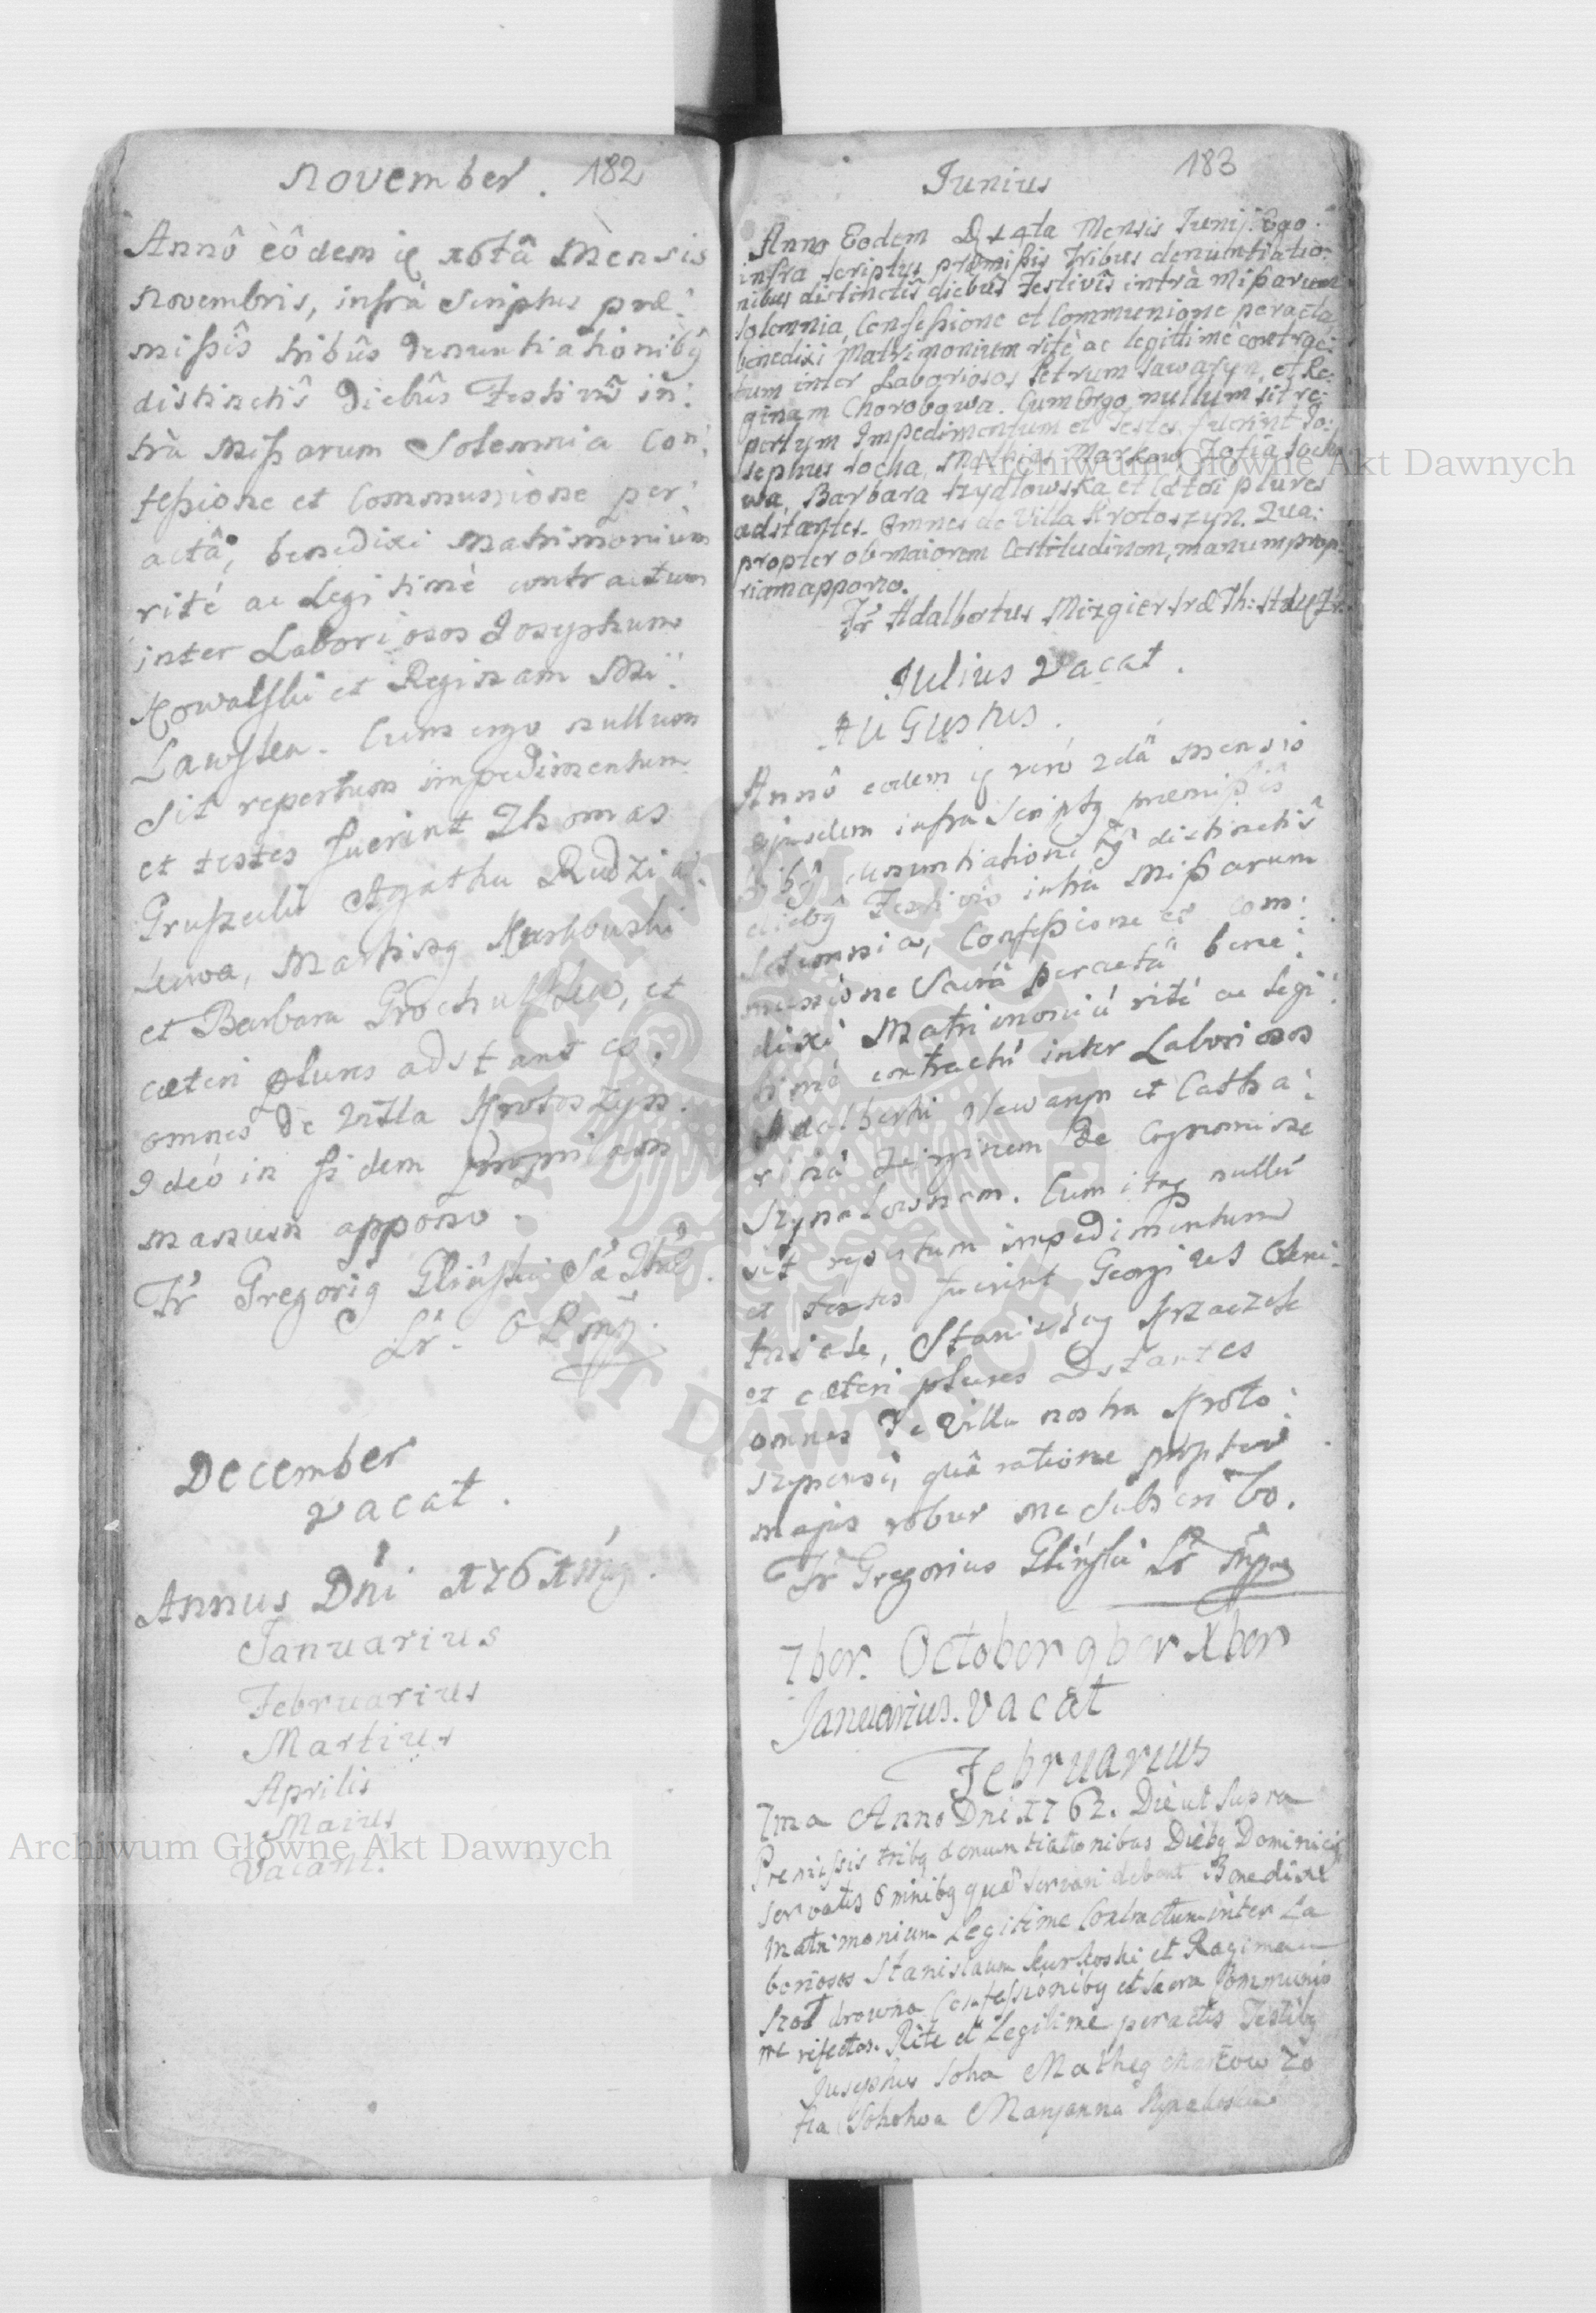 November. 182
Annô eôdem ię 16tâ Mensis
Novembris, infrà Scriptus præ:
mißîs tribûs denuntiationibꝰ
distinctîs diebûs Festivîs in:
trà Mißarum Solemnia Con:
feßione et Communione per:
actâ, benedixi Matrimonium
rité ac Legitimè contractum
inter Laboriosos Josephum
Kowalski et Reginam Mi:
Lawska. Cum ergo nullum
Sit repertum impedimentum
et testes fuerint Thomas
Grußecki Agatha Rudzia:
kowa, Martinꝰ Kurkowski
et Barbara Grochulska, et
cæteri plures adstantes.
omnes de Villa Krotoszyn.
Ideó in fidem propriam
manum appono.
Fr Gregoriꝰ Gliński Sæ Thæ
Lr. O P mp.
December
vacat.
Annus Dni 1761mꝰ.
Januarius
Februarius
Martius
Aprilis
Maius
Vacant.
183
Junius
Anno Eodem Die 14ta Mensis Junij. Ego
infra scriptus, præmißis Tribus denuntiatio:
nibus distinctîs diebûs Festivîs intrà Mißarum
solemnia, Confeßione et Communione peracta
benedixi Matrimonium rité ac legittimè contrac:
tum inter Laboriosos Petrum Sawaryn, et Re:
ginam Chorobowa. Cum Ergo nullum sit re:
pertum Impedimentum et Testes fuerint Jo:
sephus Socha, Mathias Markow, Zofia Socho
wa, Barbara Szydlowska et Cæteri plures
adstantes. Omnes de Villa Krotoszyn. Qua:
propter ob maiorem Certitudinem, manum prop:
riam appono.
Fr Adalbertus Mizgier Sræ Th:
Julius vacat.
Augustus.
Annô eodem ię verò 2dâ Mensis
ejusdem infra Scriptꝰ præmißîs
tribꝰ denuntiationibꝰ distinctîs
diebꝰ Festivîs intra Mißarum
Solemnia, Confeßione et Com:
munione Sacrâ peractâ bene:
dixi Matrimoniú rité ac Legi:
timè contractú inter Laboriosos
Adalberti Sawaryn et Catha:
riná Virginem de Cognomine
Szynalownam. Cum itaꝗ nullú
sit repertum impedimentum
et testes fuerint Georgius
Stanislaꝰ Krzaczek
et cæteri plures adstantes
omnes de Villa nostra Kroto:
szynensi, quâ ratione propter
majus robur me Subscribo.
Fr Gregorius Gliński Lr mp
7ber. October 9ber Xber
Januarius. vacat
Februarius
7ma Anno Dni 1762. Die ut Supra
Premissis tribꝰ denuntiationibus Diebꝰ Dominicis
servatis Omnibꝰ quæ servari debent Benedixi
Matrimonium Legitime Contractum inter La
boriosos Stanislaum Kurkoski et Reginam
Confessionibꝰ et Sacra Communio
ne refectos. Rite et Legitime peractis Testibꝰ
Josephus Soha Matheꝰ Markow Zo
fia Sohowa Maryanna
Archiwum Główne Akt Dawnych
Archiwum Główne Akt Dawnych
ARCHIWUM GŁÓWNE AKT DAWNYCH